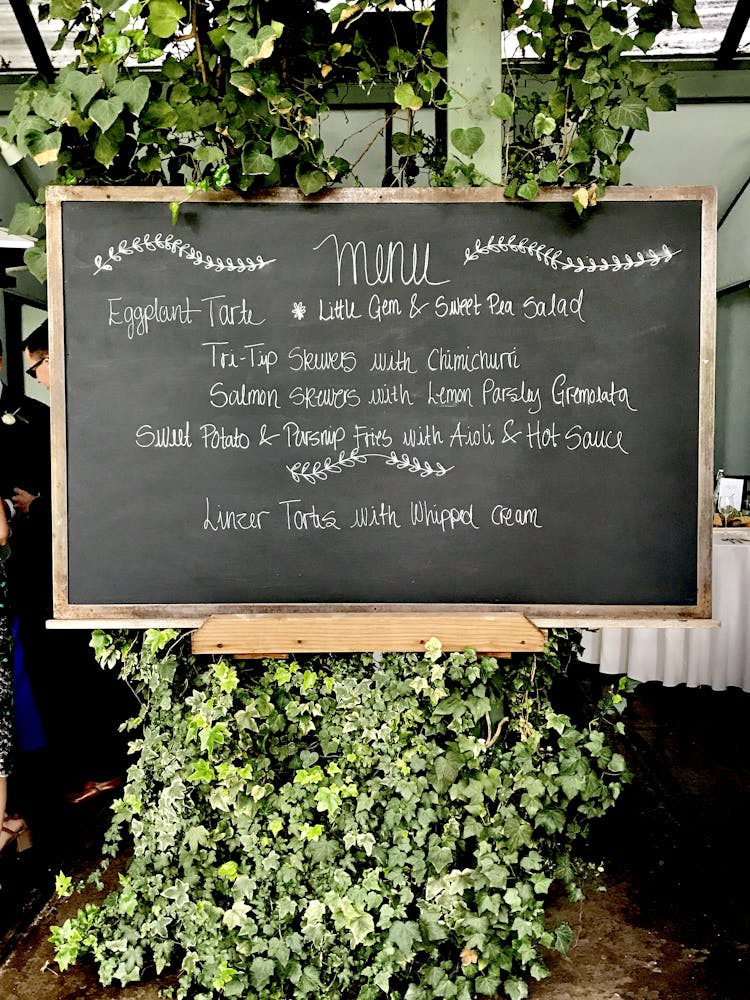 Menu
Eggplant Tarte * Little Gem & Sweet Pea Salad
Tri-Tip Skewers with Chimichurri
Salmon skewers with Lemon Parsley Gremolata
Sweet Potato & Parsnip Fries with Aioli & Hot Sauce
Linzer Tortes with Whipped cream